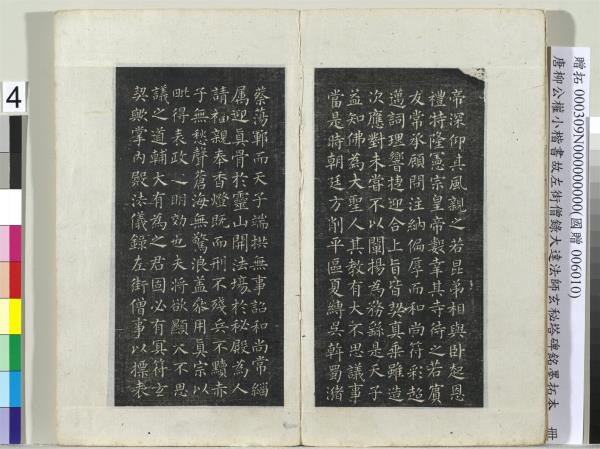 贈拓 000309N000000000(國贈 006010)
唐柳公權小楷書故左街僧錄大達法師玄秘塔碑銘墨拓本 冊
帝深仰其風親之若昆弟相與臥起恩
禮特隆憲宗皇帝數幸其寺待之若賓
友常承顧問注納偏厚而和尚符彩超
邁詞理響捷迎合上旨皆契真乘雖造
次應對未嘗不以闡揚為務繇是天子
益知佛為大聖人其教有大不思議事
當是時朝廷方削平區夏縛吳斡蜀瀦
蔡蕩鄆而天子端拱無事詔和尚常緇
屬迎真骨於靈山開法場於秘殿為人
請福親奉香燈既而刑不殘兵不黷赤
子無愁聲蒼海無驚浪蓋叅用真宗以
毗得表政之明効也夫將欲顯大不思
議之道輔大有為之君固必有冥符玄
契歟掌內殿法儀錄左街僧事以標表
4